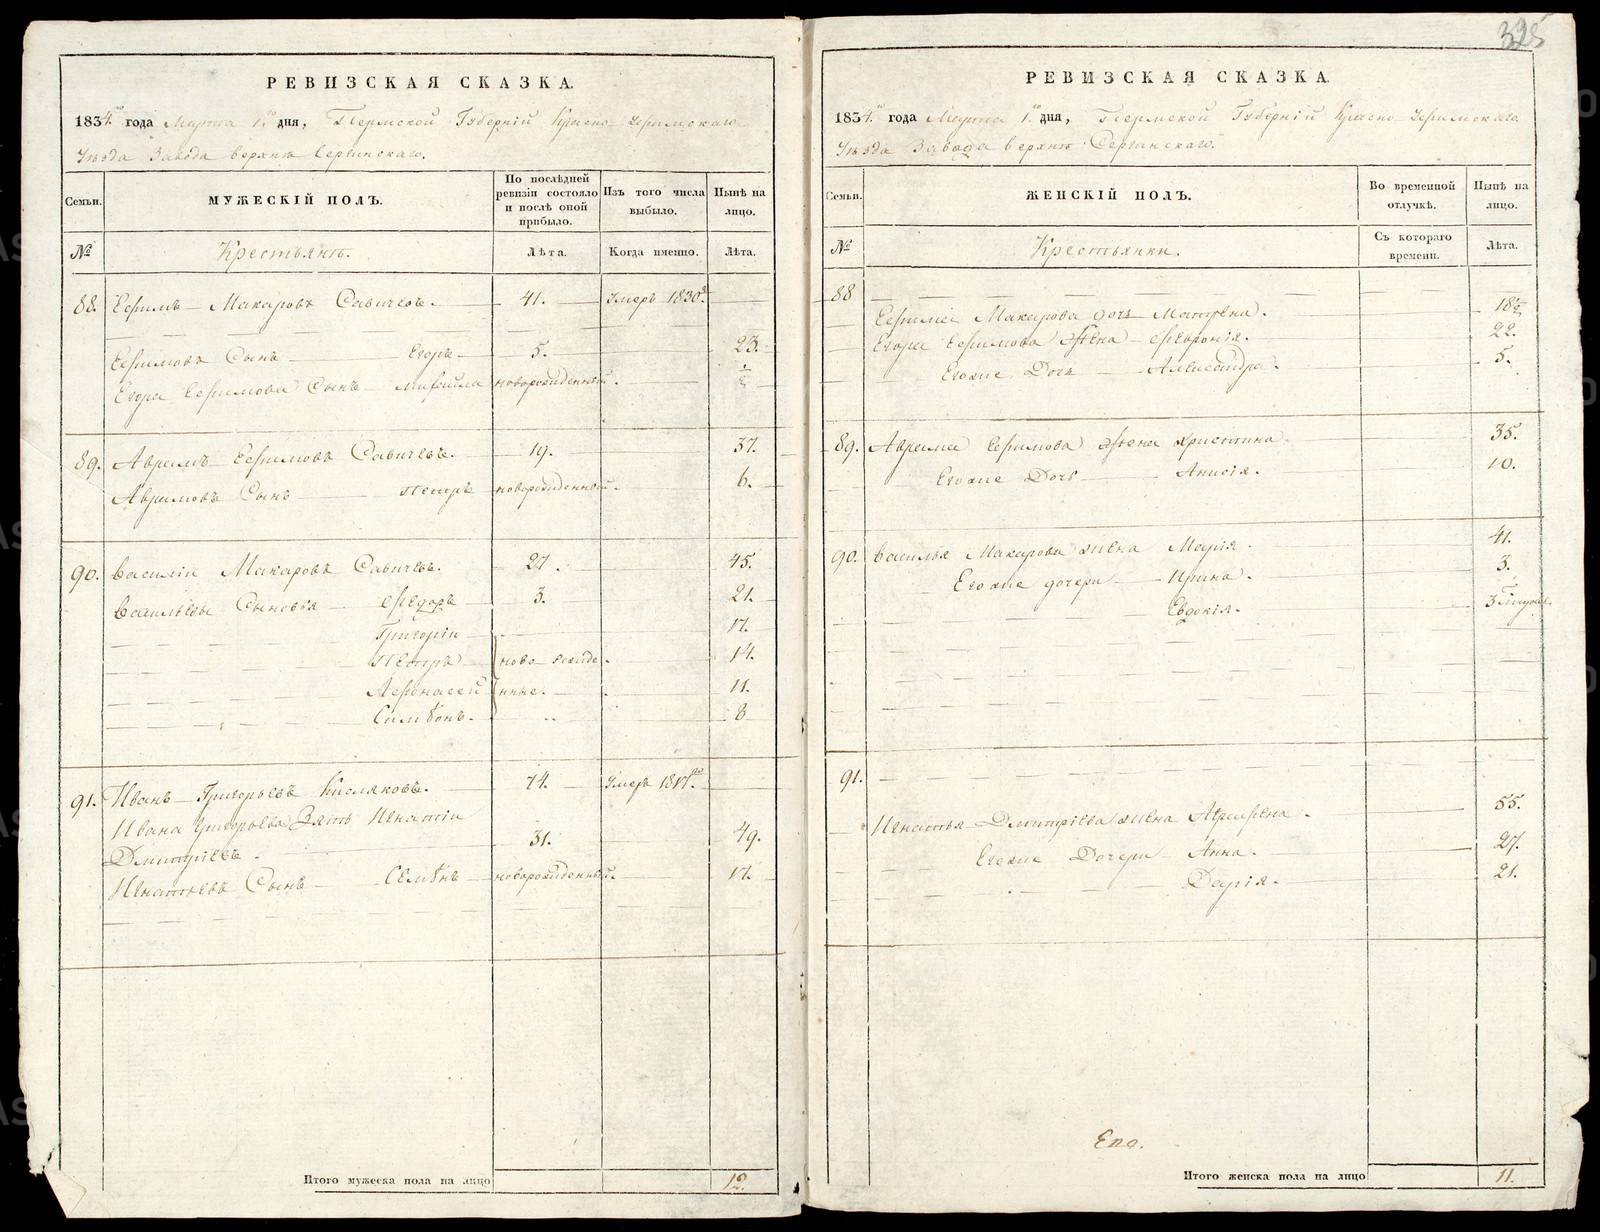 325
РЕВИЗСКАЯ СКАЗКА.
1834го года Марта 1го дня, Пермской Губерніи Красно Уфимскаго
Уѣзда Завода верхне Сергинскаго.
Семьи. МУЖЕСКІЙ ПОЛЪ. По послѣдней ревизіи состояло и послѣ оной прибыло. Изъ того числа выбыло. Нынѣ на лицо.
№ Крестьянѣ. Лѣта. Когда именно. Лѣта.
88. Ефимъ Макаровъ Савичевъ. 41. Умеръ 1830го
Ефимовъ Сынъ Егоръ 5. 23.
Егора Ефимова Сынъ Михайла новорожденный. 1/2
89. Аврамъ Ефимовъ Савичевъ. 19. 37.
Аврамовъ Сынъ Петръ новорожденный. 6.
90. Василіи Макаровъ Савичевъ. 27. 45.
Васильевы Сыновья Ѳедоръ 3. 21.
Григоріи 17.
Петръ ново рожде 14.
Афонасей нные. 11.
Семѣонъ. 8
91. Иванъ Григорьевъ Кисляковъ. 74. Умеръ 1817го
Ивана Григорьева Зять Игнатіи
Дмитріевъ. 31. 49.
Игнатьевъ Сынъ Семѣнъ новорожденный. 17.
Итого мужеска пола на лицо 12.
РЕВИЗСКАЯ СКАЗКА.
1834го года Марта 1го дня, Пермской Губерніи Красно Уфимскаго
Уѣзда Завода верхне Сергинскаго.
Семьи. ЖЕНСКІЙ ПОЛЪ. Во временной отлучкѣ. Нынѣ на лицо.
№ Крестьянки. Съ котораго времени. Лѣта.
88
Ефима Макарова дочь Матрена. 18 1/2
Егора Ефимова Жена Ѳевронія. 22.
Егоже Дочь Александра. 5.
89. Аврама Ефимова Жена Христина. 35.
Егоже Дочь Анисія. 10.
90. Василья Макарова жена Марія. 41.
Егоже дочери Ирина. 3.
Евдокія. 3
91.
Игнатья Дмитріева жена Аграфена. 55.
Егоже Дочери Анна. 27.
Дарія. 21.
Его.
Итого женска пола на лицо 11.